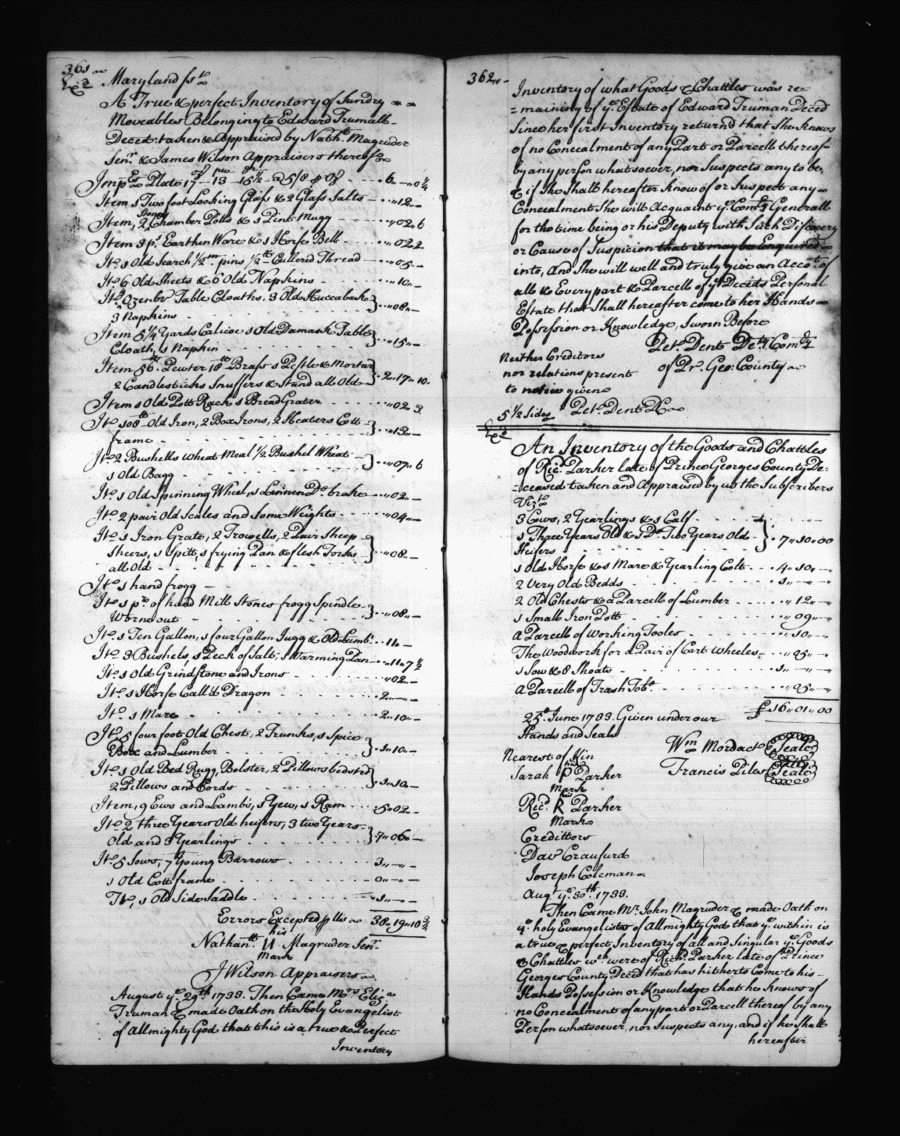 361
Ex.d Maryland ss.t
A True & perfect Inventory of Sundry
Moveables Belonging to Edward Trumall
Deced: taken & Appraised by Nath.ll Magruder
Sen.r & James Wilson Appraisers thereof
Imp.s Plate
Item 1 Two foot Looking Glass & 2 Glass Salts - - „12 „ -
Item, 2 Stone Chamber Potts & 1 Pint Mugg - - „02„6
Item 9 p.s Earthen Ware & 1 Horse Bell - - „02„2
It.m 1 Old Search pins Cullered Thread - - „05 „ -
It.m 6 Old Sheets & 6 Old Napkins - - „10„ -
It.m Ozenbr. Table Cloaths. 3 Old Huccabak
3 Napkins - - „08„ -
Item 5 1/4 Yards Calicoe 1 Old Damask Table
Cloath, 1 Napkin - - „15„ -
Item 56.lb Pewter 10.lb Brass 1 Pestle & Mortar
2 Candlesticks Snuffers & Stand all Old - 2„17„10
Item 1 Old Pott Rack 1 Bread Grater - - „02„3
It.m 108.lb Old Iron, 2 Box Irons, 2 Heaters Cott
frame - - „13„ -
It.m 2 Bushells Wheat Meal 1/2 Bushel Wheat
1 Old Bagg - - „07„6
It.m 1 Old Spinning Wheel, 1 Linnen D.o brake - - „02„ -
It.m 2 pair Old Scales and Some Weights - - „04„ -
It.m 1 Iron Grate, 2 Trowells, 2 Pair Sheep
Sheers, 1 Spitt, 1 frying Pan & flesh Forks
all Old - - „08„ -
It.m 1 hand frogg -
It.m 1 p.r of hand Mill Stones frogg Spindle
Worn out - - „08„ -
It.m 1 Ten Gallon, 1 four Gallon Jugg & Old Lumb.r - 11„ -
It.m 3 Bushels 1 Peck of Salt, 1 Warming Pan - - „11„7 1/2
It.m 1 Old Grindstone and Irons - - „02„ -
It.m 1 Horse Call'd Dragon - 2„ - „ -
It.m 1 Mare - 2„10„ -
It.m 5 four foot Old Chest, 2 Trunks, 1 Spice
Box and Lumber - 1„10„ -
It.m 1 Old Bed Rugg, Bolster, 2 Pillows bedsted
2 Pillows and Cords - 1„10„ -
Item, 9 Ews and Lambs, 1 Yew, 1 Ram - 5„02 -
It.m 2 three Years Old heifers, 3 two Years
Old and 3 Yearlings - 7„06„ -
It.m 5 Sows, 7 Young Barrows - 3„ - „ -
1 Old Cott frame
It.m, 1 Old Side Saddle
Errors Excepted p us 38„19„10 3/4
his
Nathan.ll N Magruder Sen.r
Mark
J Wilson Appraisers
August y.e 29.th 1733. Then Came M.rs Eliz.a
Truman & made Oath on the Holy Evangelist
of Allmighty God that this is a true & Perfect
Inventory
362
Inventory of what Goods & Chattles was re=
=maining of y.e Estate of Edward Truman Deced
Since her first Inventory returnd that She knows
of no Concealment of any Part or Parcell thereof
by any person whatsoever, nor Suspects any to be,
& if She Shall hereafter Know of or Suspect any
Concealment She will Acquaint y.e Com.ry Generall
for the time being or his Deputy with Such Discovery
or Cause of Suspicion that it may be Enquired
into, And She will well and truly give an Acco.t of
all & Every part & Parcell of y.e Deceds Personal
Estate that Shall hereafter come to her Hands
Possession or Knowledge, Sworn Before
Pet.r Dent De.ty Com.ry
of Pr. Geo: County
Neither Creditors
nor relations present
to notice given
5 1/2 Sides Pet.r Dent D.C
Ex.d
An Inventory of the Goods and Chattles
of Ric.d Parker late of Prince Georges County De=
=ceased taken and Appraised by us the Subscribers
Viz.t
3 Cows, 2 Yearlings & 1 Calf
1 Three Years Old & 1 D.o Two Years Old
Heifers - 7„10„00
1 Old Horse & 1 Mare & Yearling Colt - 4„10„ -
2 Very Old Bedds - 1„ - „ -
2 Old Chests & a Parcell of Lumber - - „12„ -
1 Small Iron Pott - - „09„ -
a Parcell of Working Tooles - - „10„ -
The Woodwork for a Pair of Cart Wheeles - - „05„ -
1 Sow & 8 Shoats - 1„ - „ -
a Parcell of Trash Tob.o - - „05„ -
£16„01„00
25.th June 1733. Given under our
Hands and Seals
Wm Mordack (Seal)
Francis Piles (Seal)
Nearest of Kin
Sarah P Parker
Mark
his
Ric.d R Parker
Marks
Credittors
Dav.d Craufurd
Joseph Coleman
Aug.t y.e 30.th 1733.
Then Came M.r John Magruder & made Oath on
y.e holy Evangelists of Allmighty God that y.e within is
a true & perfect Inventory of all and Singular y.e Goods
& Chattles w.ch were of Rich.d Parker late of Prince
Georges County Deced that has hitherto Come to his
Hands Possession or Knowledge that he Knows of
no Concealment of any part or Parcell thereof by any
Person whatsoever, nor Suspects any, and if he Shall
hereafter